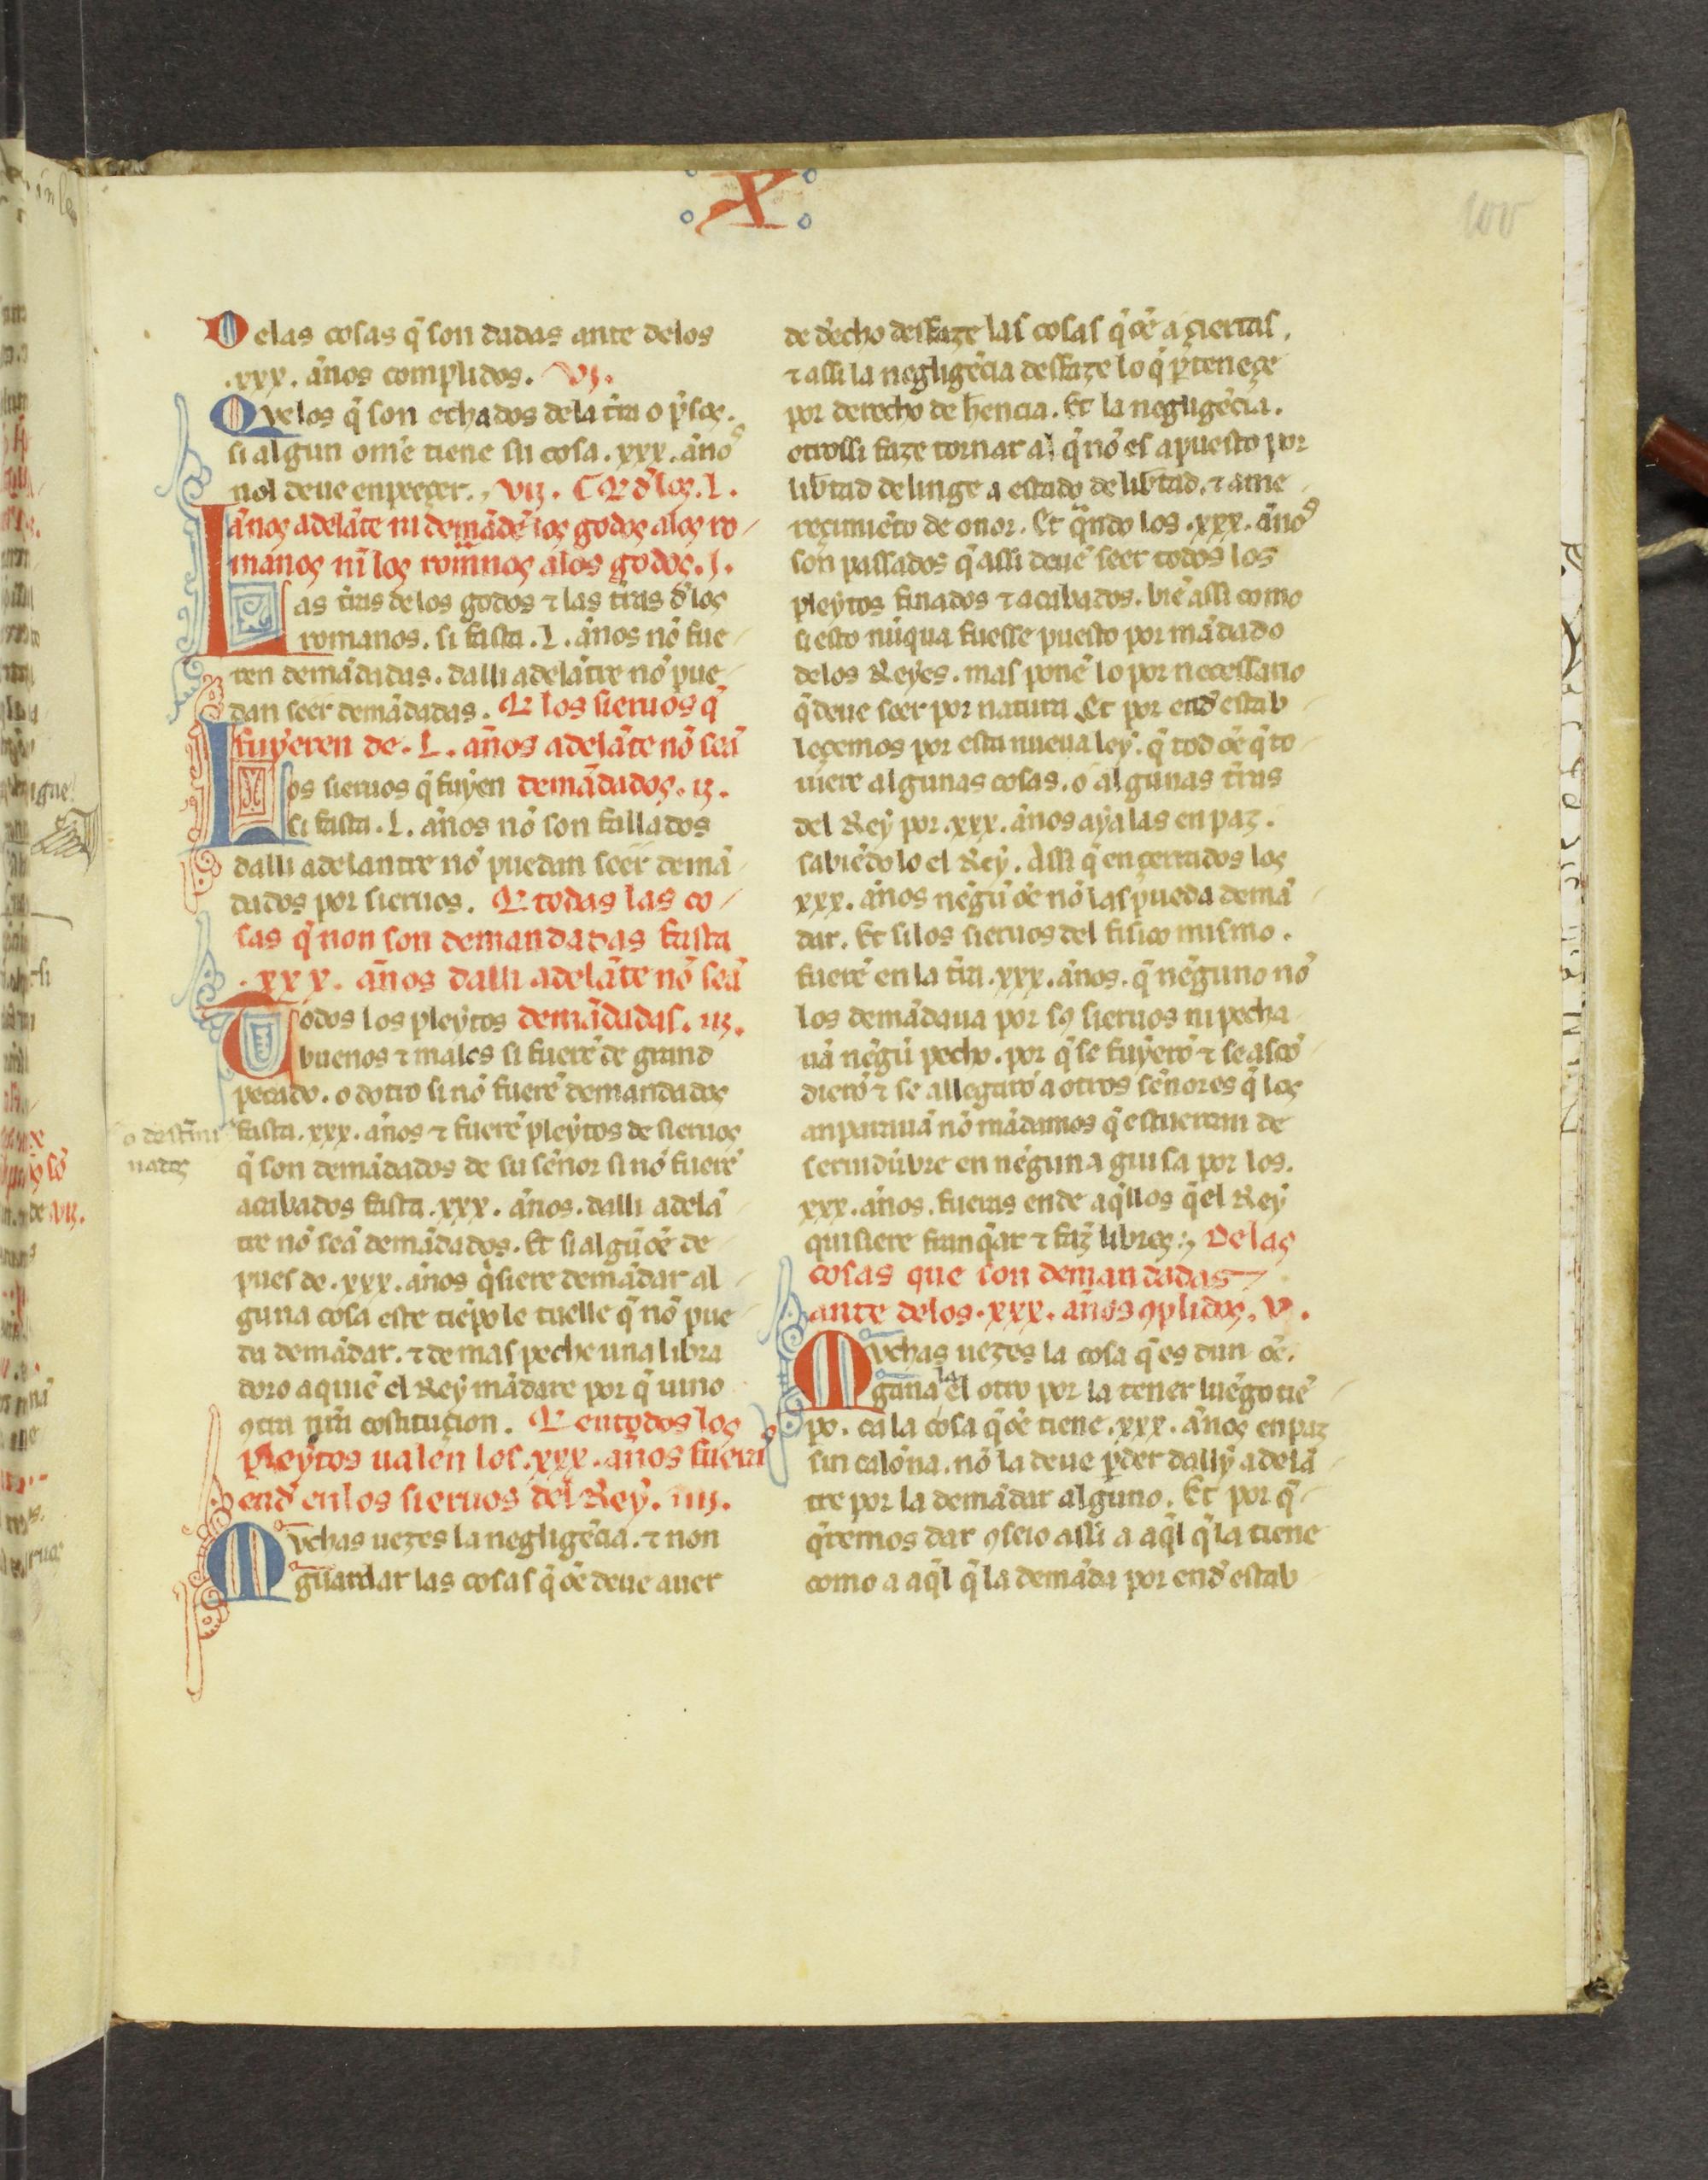 X
100
Delas cosas q̃ son dadas ante delos
.xxx. ãnos complidos. VI.
Qvelos q̃ son echados dela t̃ra o p̃sos.
si algun om̃e tiene su cosa .xxx. ãnos
nol deue enpeeçer. VII. Q̃ dlos .L.
ãnos adelãte ni demãdẽ los godos alos ro
manos nĩ los romãnos alos godos. I.
Las t̃ras delos godos ⁊ las t̃ras dlos
romanos. si fasta .L. ãnos nõ fue
ren demãdadas. dalli adelãtre nõ pue
dan seer demãdadas. Q̃ los sieruos q̃
fuyeren de .L. ãnos adelãte nõ seã
Los sieruos q̃ fuyen demãdados. II.
si fasta .L. ãnos nõ son fallados
dalli adelantre nõ puedan seer demã
dados por sieruos. Q̃ todas las co
sas q̃ non son demandadas fasta
.xxx. ãnos dalli adelãte nõ seã
Todos los pleytos demãdadas. III.
buenos ⁊ malos si fuerẽ de grand
pecado. o dotro si nõ fuerẽ demandados
o destr̃mi
nados
fasta .xxx. ãnos ⁊ fuerẽ pleytos de sieruos
q̃ son demãdados de su sẽnor si nõ fuerẽ
acabados fasta .xxx. ãnos. dalli adelã
tre nõ seã demãdados. Et si algũ oẽ de
pues de .xxx. ãnos q̃siere demãdar al
guna cosa este tiẽpo le tuelle q̃ nõ pue
da demãdar. ⁊ demas peche una libra
doro aquiẽ el Rey mãdare por q̃ uino
ꝯtra nr̃a costituçion. Q̃ en todos los
pleytos ualen los .xxx. ãnos fuera
end en los sieruos del Rey. IIII.
Mvchas uezes la negligẽcia. ⁊ non
guardar las cosas q̃ oẽ deue auer
de decho desfaze las cosas q̃ oẽ a çiertas.
⁊ assi la negligẽcia desfaze lo q̃ ꝑteneçe
por derecho de hencia. Et la negligẽcia.
otrossi faze tornar al q̃ nõ es apuesto por
libtad de linge a estado de libtad. ⁊ a me
reçimiẽto de onor. Et q̃ndo los .xxx. ãnos
son passados q̃ assi deuẽ seer todos los
pleytos finados ⁊ acabados. biẽ assi como
si esto nũqua fuesse puesto por mãdado
delos Reyes. mas ponẽ lo por necessario
q̃ deue seer por natura. Et por end estab
leçemos por esta nueua ley. q̃ tod oẽ q̃ to
uiere algunas cosas. o algunas t̃ras
del Rey por .xxx. ãnos aya las en paz.
sabiẽdo lo el Rey. Assi q̃ en çerrados los
xxx. ãnos negũ oẽ nõ las pueda demã
dar. Et si los sieruos del fisico mismo.
fuerẽ en la t̃ra .xxx. ãnos. q̃ neguno nõ
los demãdaua por sꝯ sieruos ni pecha
uã negũ pecho. por q̃ se fuyerõ ⁊ se ascõ
dierõ ⁊ se allegarõ a otros sẽnores q̃ los
anparauã nõ mãdamos q̃ estuerzan de
seruidũbre en neguna guisa por los.
xxx. ãnos. fueras ende aq̃llos q̃ el Rey
quisiere franq̃ar ⁊ faz̃ libres:, De las
cosas que son demandadas
ante delos .xxx. ãnos ꝯplidos. V.
Mvchas uezes la cosa q̃ es dun oẽ.
gana la el otro por la tener luẽgo tiẽ
po. ca la cosa q̃ oẽ tiene .xxx. ãnos en paz
sin calõna. nõ la deue ꝑder dally adelã
tre por la demãdar alguno. Et por q̃
q̃remos dar ꝯseio assi a aq̃l q̃ la tiene
como a aq̃l q̃ la demãda por end estab